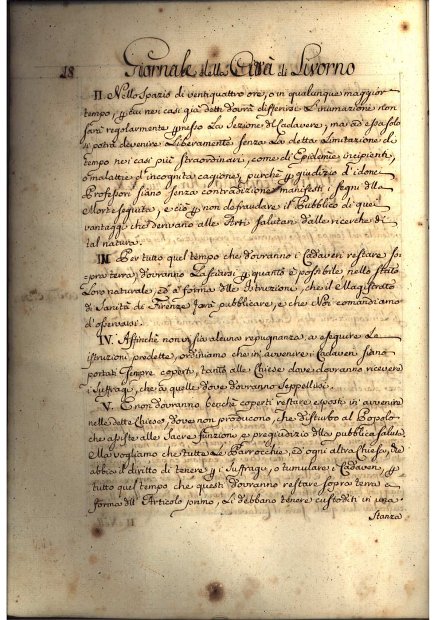 18 Giornale della Città di Livorno
II. Nello Spazio di ventiquattro ore, o in qualunque maggior
tempo, per cui nei casi già detti dovrà differirsi L'inumazione non
sarà regolarmente permesso La Sezione del Cadavere, ma ad essa solo
si potrà devenire Liberamente senza La detta Limitazione di
tempo nei casi più straordinari, come di Epidemie incipienti,
o malattie d'incognita cagione, purchè per giudizio d'idonei
Professori siano senza contradizione manifesti i segni della
Morte seguita, e ciò per non defraudare il Pubblico di quei
vantaggi che derivano alle Arti Salutari dalle ricerche di
tal natura.
III. Per tutto quel tempo che dovranno i Cadaveri restare so=
=pra terra, dovranno Lasciarsi per quanto è possibile nello stato
Loro naturale, ed a forma delle Istruzioni, che il Magistrato
di Sanità di Firenze farà pubblicare, e che Noi comandiamo
d'osservarsi.
IV. Affinchè non vi sia alcuna repugnanza a eseguire Le
istruzioni predette, ordiniamo che in avvenire i Cadaveri siano
portati sempre coperti, tanto alle Chiese dove dovranno ricevere
i Suffragi, che a quelle dove dovranno Seppellirsi.
V. E non dovranno benchè coperti restare esposti in avvenire
nelle dette Chiese, dove non producono, che disturbo al Popolo
che assiste alle Sacre funzioni, e pregiudizio alla pubblica salute
Ma vogliamo che tutte Le Parrocchie, ed ogni altra Chiesa, che
abbia il diritto di tenere per i Suffragi, o tumulare i Cadaveri, per
tutto quel tempo che questi dovranno restare sopra terra a
forma dell'Articolo primo, Li debbano tenere custoditi in una
Stanza